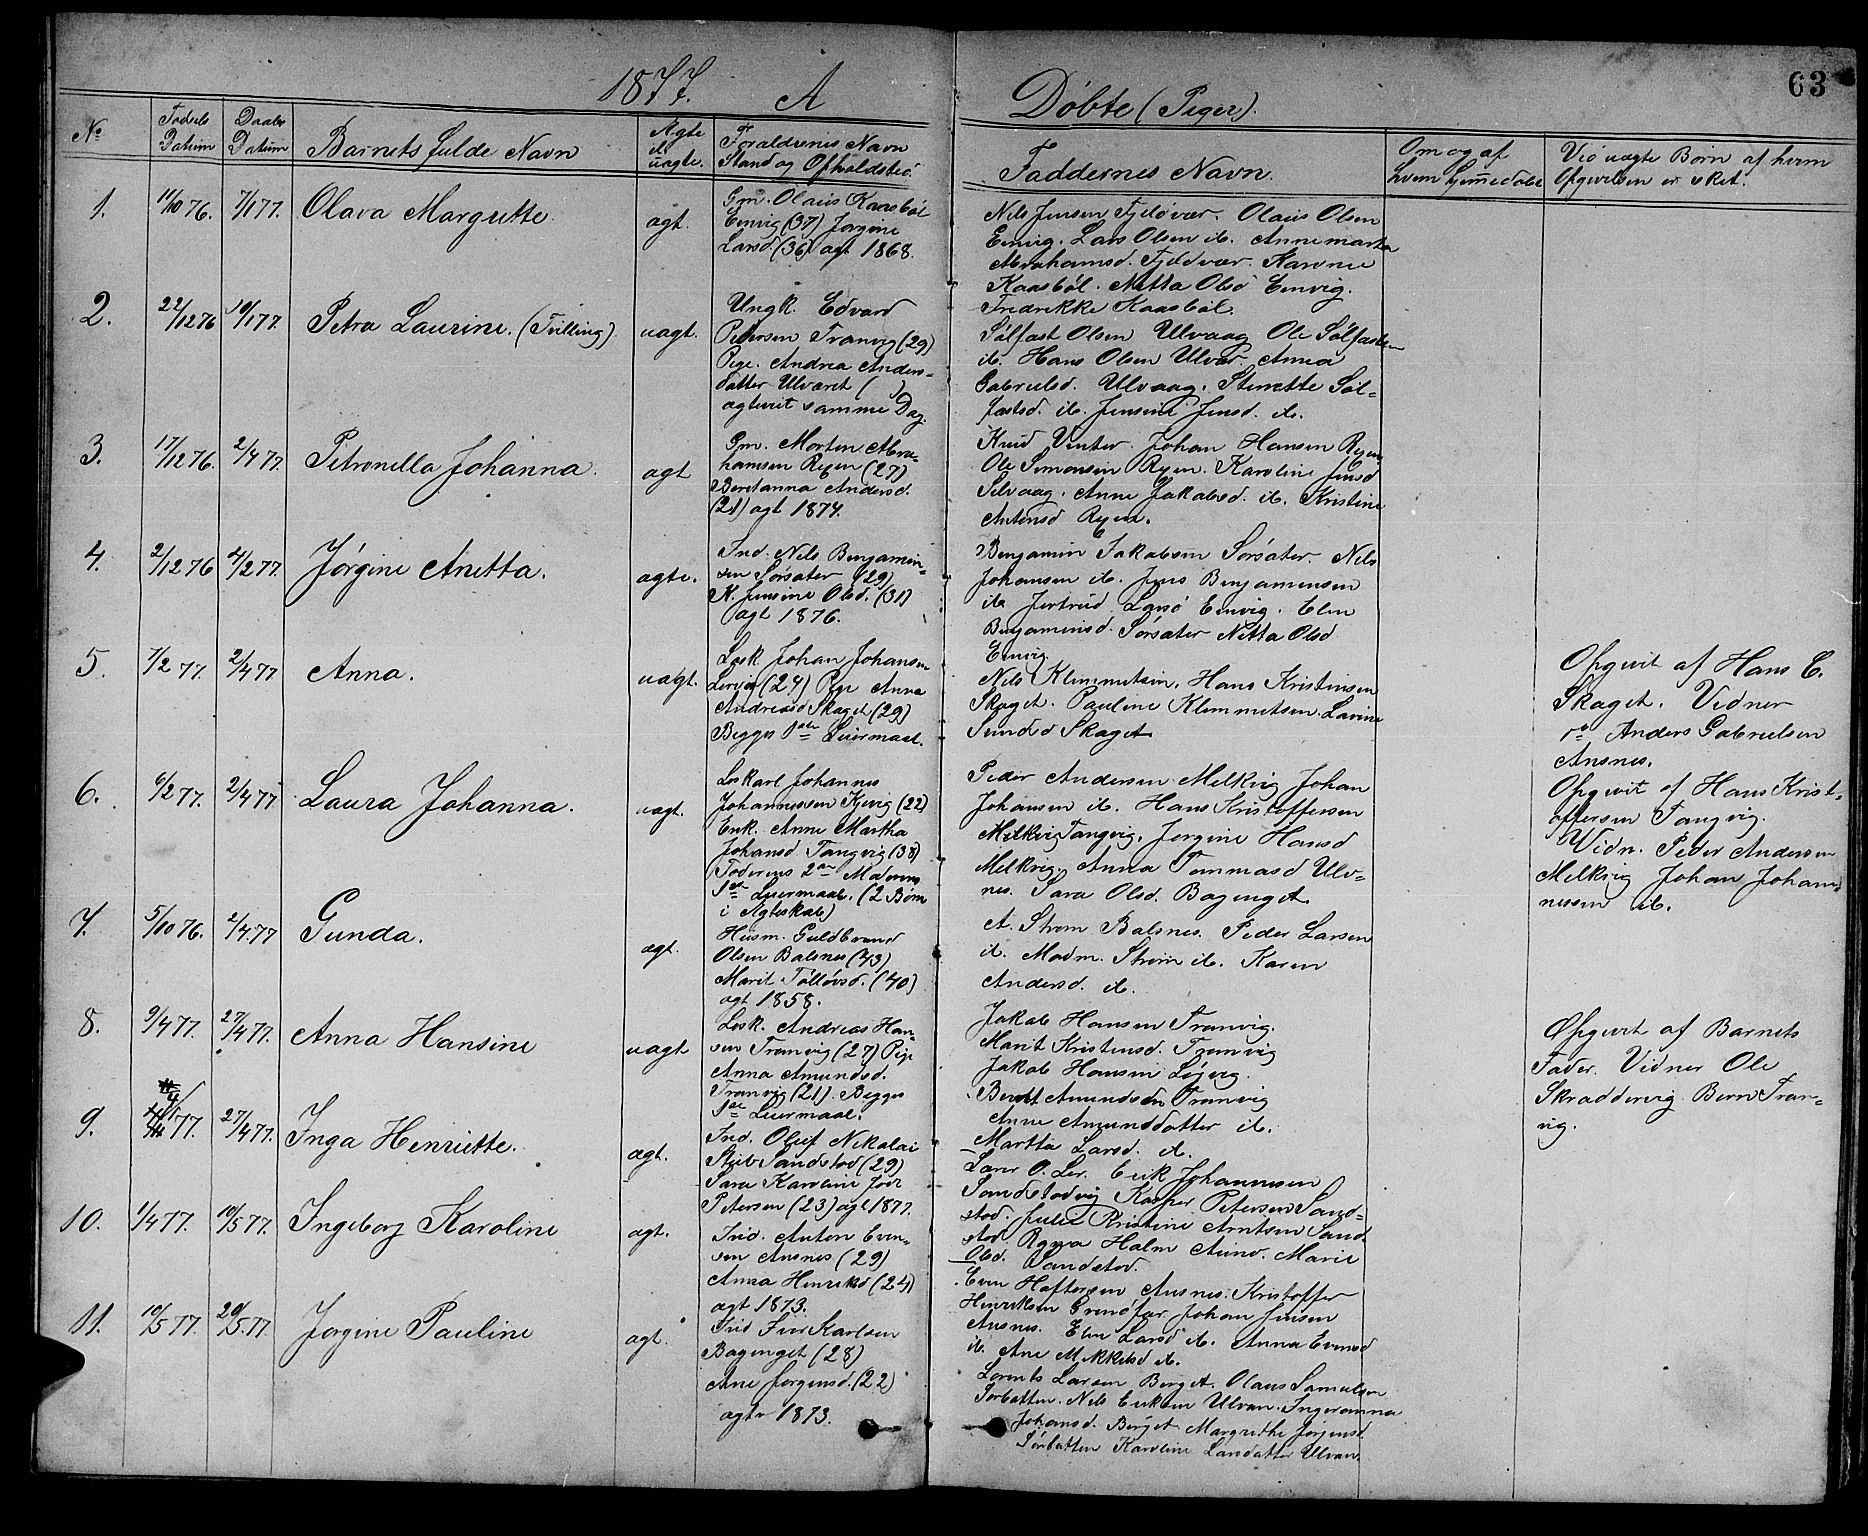 1877. A Døbte (Piger). 63
No
Fødsels Datum
Daabs Datum
Barnets fulde Navn
Ægte el. uægte.
Forældrenes Navn Stand og Opholdsted.
Faddernes Navn.
Om og af hvem hjemmedøbt
Ved uægte Børn af hvem Opgivelsen er sket.
1. 11/10 76. 7/1 77. Olava Margrette. ægt.
Gm. Olaus Kaasbøl
Emvig (37) Jørgine
Larsd. (36) ægt 1868.
Nils Jensen Fjeldvær. Olaus Olsen
Emvig. Lars Olsen ib. Annemarta
Abrahamsd. Fjeldvær. Karonne
Kaasbøl. Netta Olsd Emvig.
Fredrikke Kaasbøl.
2. 22/12 76 10/1 77. Petra Laurine. (Tvilling). uægt.
Ungk. Edvard
Petersen Tranvig (29)
Pige. Andrea Anders-
datter Ulværet ( )
ægteviet samme Dag.
Sølfast Olsen Ulvaag Ole Sølfasten
ib. Hans Olsen Ulvær Anna
Gabrielsd. Ulvaag. Stinette Søl-
fastsd. ib. Jensine Jensd. ib.
3. 17/12 76. 2/4 77. Petronella Johanna. ægt
Gm. Morten Abra-
hamsen Ryen (27)
Beretanna Andersd.
(21) ægt 1874.
Knud Vinter. Johan Hansen Ryen
Ole Simonsen Ryen. Karoline Jensd
Selvaag. Anne Jakobsd. ib. Kristine
Antonsd Ryen.
4. 2/12 76 4/2 77. Jørgine Anetta. ægte.
Ind. Nils Benjamin-
sen Sørsæter (29)
K. Jensine Olsd. (31)
ægt 1876.
Benjamin Jakobsen Sørsæter. Nils
Johansen ib. Jens Benjaminsen
ib Jertrud Larsd Emvig. Elen
Benjaminsd. Sørsæter Netta Olsd
Emvig.
5. 7/2 77. 2/4 77 Anna. uægt.
Løsk. Johan Johansen
Lervig (24) Pige Anna
Andreasd Skaget (29)
Begges 1ste Leiermaal.
Nils Klemmetsen. Hans Kristensen
Skaget. Pauline Klemmetsen. Lavine
Sundsd Skaget.
Opgivit af Hans C.
Skaget. Vidner
Anders Gabrielsen
Ansnes.
6. 6/2 77. 2/4 77 Laura Johanna. uægt.
Løskarl Johannes
Johannessen Kjevig (22)
Enk. Anne Martha
Johansd Tangvig (38)
Faderens 2det Moderens
1ste Leiermaal. (2 Børn
i Ægteskab)
Peder Andersen Melkvig Johan
Johansen ib. Hans Kristoffersen
Tangvig. Jørgine Hansd
Melkvig. Anna Tommasd Ulv-
nes. Sara Olsd. Bagenget.
Opgivit af Hans Krist-
offersen Tangvig.
Vidn. Peder Andersen
Melkvig Johan Johan-
nessen ib.
7. 5/10 76. 2/4 77 Gunda. ægt.
Husm. Guldbrand
Olsen Balsnes (43)
Marit Tollevsd. (40)
ægt 1858.
A. Strøm Balsnes. Peder Larsen
ib. Madm. Strøm ib. Karen
Andersd. ib.
8. 9/4 77. 27/4 77. Anna Hansine uægt
Løsk. Andreas Han-
sen Tranvig (27) Pige
Anna Amundsd.
Tranvig (21). Begges
1ste Leiermaal.
Jakob Hansen Tranvig.
Marit Kristensd. Tranvig
Jakob Hansen Løgvig.
Berndt Amundsen Tranvig
Anne Amundsdatter ib.
Martha Larsd. ib.
Opgivit af Barnets
Fader. Vidner Ole
Skraddervig Bernt Tran-
vig.
9. 77. 27/4 77. Inga Henriette. ægt.
Ind. Oluf Nikolai
Stub Sandstad (29)
Sara Karoline født
Petersen (23) ægt 1877.
Lærer O. Ler. Erik Johannesen
Sandstadvig Kasper Petersen Sand-
stad. Julie Kristine Arntsen Sand-
stad. Holm Marie
Olsd. Sandstad.
10. 1/4 77. 10/5 77. Ingeborg Karoline ægt.
Ind. Anton Even-
sen Ansnes (29)
Anna Henriksd (24)
ægt 1873.
Even Haftorsen Ansnes. Kristoffer
Henriksen Grindfar. Johan Jensen
Ansnes. Elen Larsd ib. Anna Evensd
ib. Ane Mikkelsd ib.
11. 10/5 77. 20/5. 77. Jørgine Pauline ægt.
Ind Iver Karlsen
Bagenget (28)
Ane Jørgensd. (22)
ægte 1873.
Lorents Larsen Berget. Olaus Samuelsen
Sørbatten. Nils Eriksen Ulvan. Ingeranna
Johansd. Berget. Margrethe Jørgensd.
Sørbatten Karoline Larsdatter Ulvan.